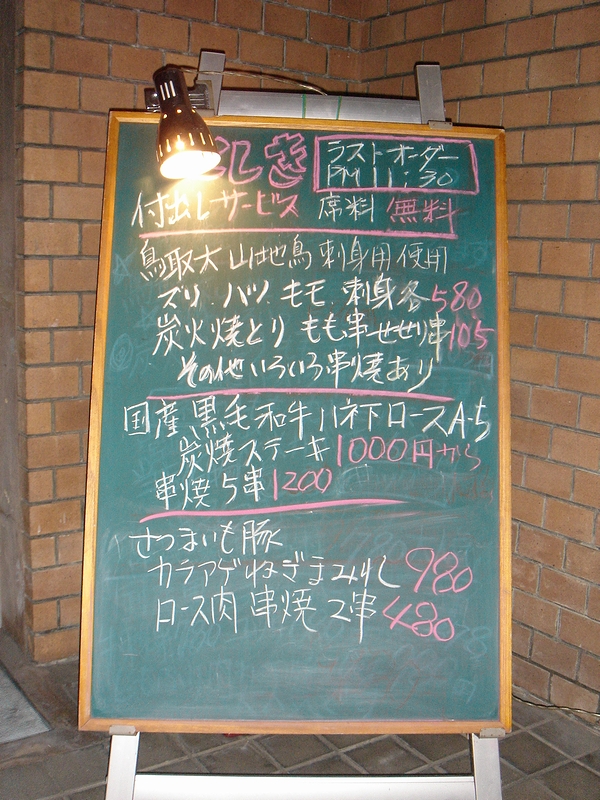 しき
ラストオーダー
PM 11:30
付出しサービス 席料 無料
鳥取大山地鳥刺身用使用
ズリ.ハツ.モモ.刺身各580
炭火焼とり もも串 せせり串105
その他いろいろ串焼あり
国産黒毛和牛ハネ下ロースA-5
炭焼ステーキ1000円から
串焼5串1200
さつまいも豚
カラアゲねぎまみれ980
ロース肉 串焼 2串480